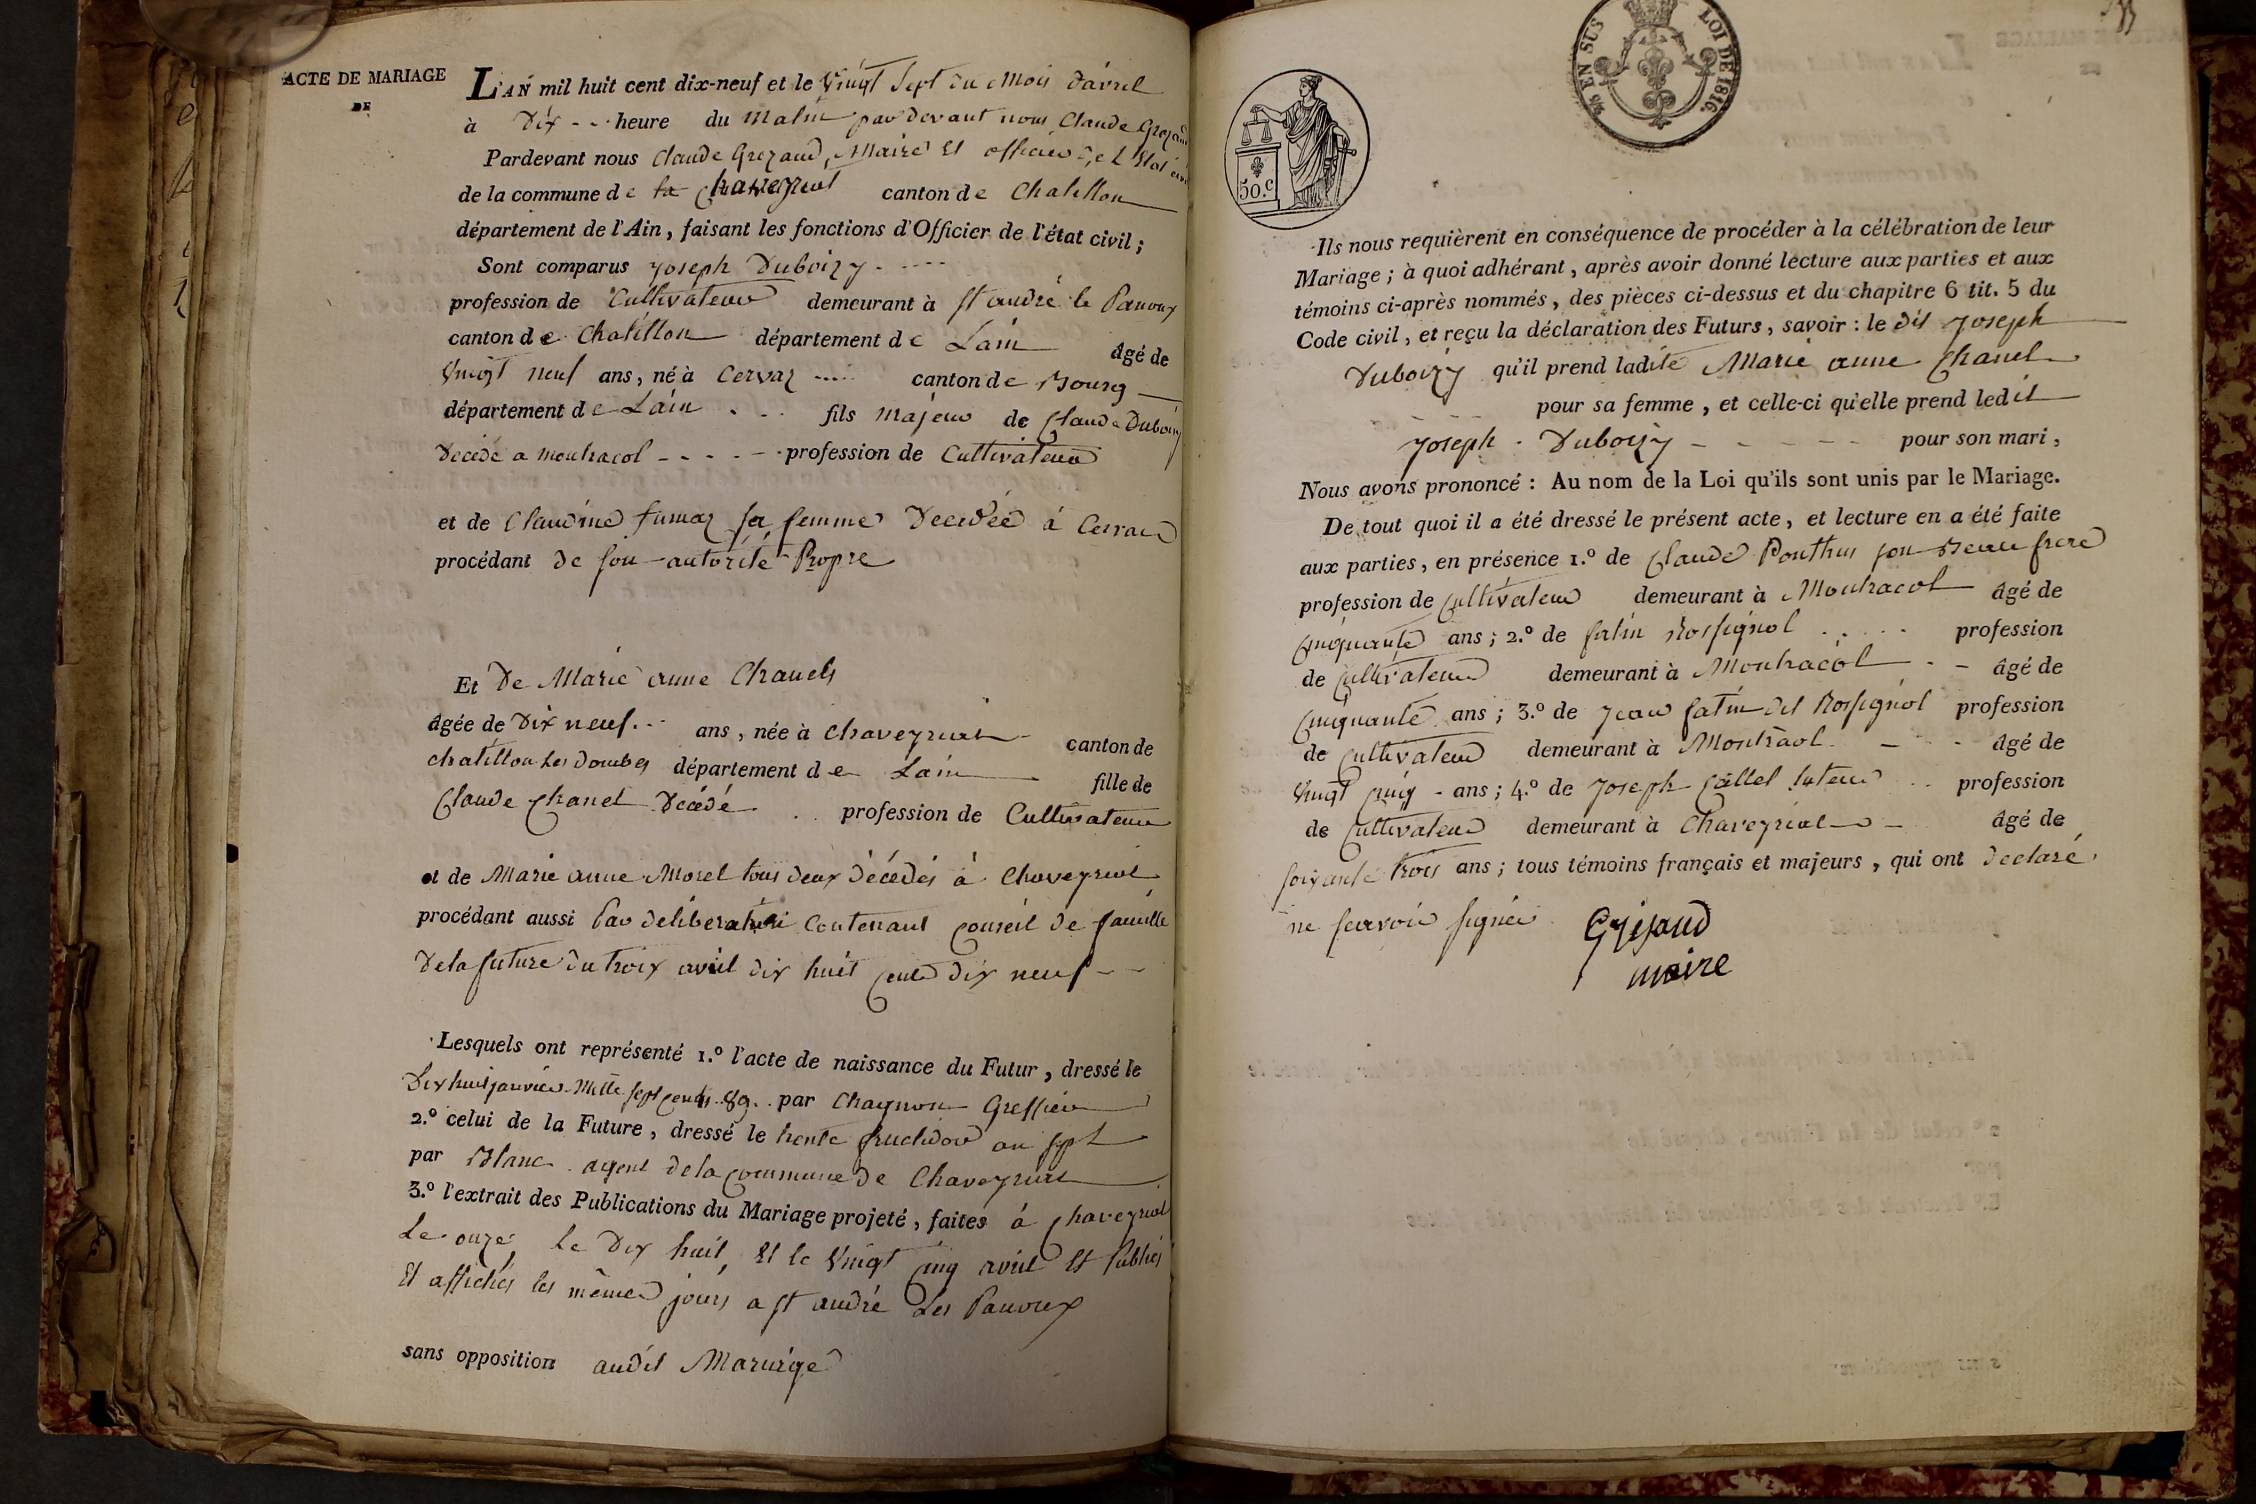 ACTE DE MARIAGE
DE
L'AN mil huit cent dix-neuf et le vingt sept du Mois d'avril
à Dix -- heure du Matin par devant nous Claude Grezaud
Pardevant nous Claude Grezaud, Maire Et officier de L'Etat civil
de la commune de la Chaveyriat canton de Chatillon
département de l'Ain, faisant les fonctions d'Officier de l'état civil;
Sont comparus Joseph Duboizy - ----
profession de Cultivateur demeurant à St andré le Panoux
canton de Chatillon département de Lain âgé de
Vingt neuf ans, né à Cervaz ---- canton de Bourg
département de Lain . . . fils majeur de Claude Duboizy
Décédé a montracol - - - - - - profession de Cultivateur
et de Claudine fumaz sa femme Décédée à Cervaz
procédant de son autorité Propre
Et De Marie anne Chanel
âgée de Dix neuf -- ans, née à Chaveyriat canton de
chatillon Les Dombes département de Lain fille de
Claude Chanel Décédé . . profession de Cultivateur
et de Marie anne Morel tous deux Décédés à Chaveyriat
procédant aussi Par deliberation Contenant Conseil de famille
De la future du troix avril dix huit Cent dix neuf - -
Lesquels ont représenté 1.º l'acte de naissance du Futur, dressé le
Dix huit janvier Mille sept cents 89. par Chaynon Greffier
2.º celui de la Future, dressé le trente fructidor an sept
par Blanc agent de la Commune de Chaveyriat
3.º l'extrait des Publications du Mariage projeté, faites à Chaveyriat
Le onze, le Dix huit, Et le Vingt Cinq avril Et Publiés
Et affichés les mêmes jours a St andré Les Panoux
sans opposition audit Mariage
50.c
EN SUS
LOI DE 1816.
Ils nous requièrent en conséquence de procéder à la célébration de leur
Mariage; à quoi adhérant, après avoir donné lecture aux parties et aux
témoins ci-après nommés, des pièces ci-dessus et du chapitre 6 tit. 5 du
Code civil, et reçu la déclaration des Futurs, savoir: le dit Joseph
Duboizy qu'il prend ladite Marie anne Chanel
pour sa femme, et celle-ci qu'elle prend ledit
Joseph - Duboizy - - - - - pour son mari,
Nous avons prononcé: Au nom de la Loi qu'ils sont unis par le Mariage.
De tout quoi il a été dressé le présent acte, et lecture en a été faite
aux parties, en présence 1.º de Claude Ponthus son Beau frere
profession de Cultivateur demeurant à Montracol âgé de
Cinquante ans; 2.º de fatin Rossignol . . . . . profession
de Cultivateur demeurant à Montracol - - âgé de
Cinquante ans; 3.º de Jean fatin dit Rossignol profession
de Cultivateur demeurant à Montraol - - âgé de
Vingt Cinq - ans; 4.º de Joseph Callet tuteur . . profession
de Cultivateur demeurant à Chaveyriat - âgé de
soixante trois ans; tous témoins français et majeurs, qui ont declaré
ne scavoir signer Gréjaud
maire